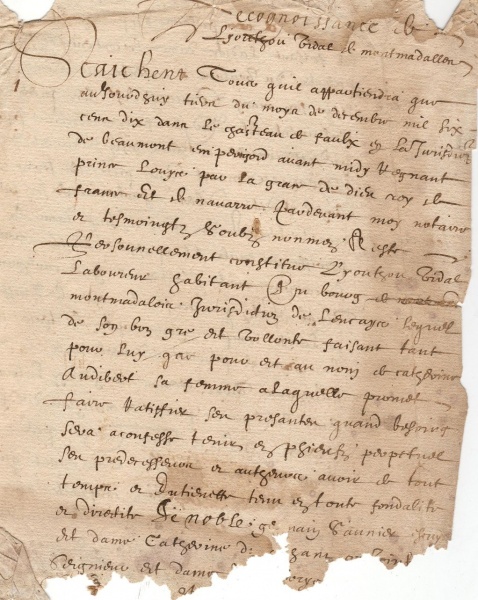 Reconoissance de
Lyonthou Vidal de montmadallen
Scaichent Tous quil appartiendra que
au jourdhuy tiers du moys de decembre mil six
cens dix dans le chasteau de faulx en la Jurisdicon
de beaumont en perigord avant midy Regnant
prince Louys par la grace de dieu roy de
france et de navarre Pardevant moy notaire
et tesmoingtz soubz nommez A este
Personnellement constitue Lyonthou Vidal
Laboureur habitant du bourg de
montmadalois Jurisdiction de Lencays lequel
de son bon gre et vollonte faisant tant
pour luy que pour et au nom de catherine
Audibert sa femme a laquelle promet
faire Ratiffier ses presantes quand besoing
sera a confesse tenir en perpetuel
ses predecesseurs et autheurs avoir de tout
temps et tenu en toute fondalite
et directite De noble Saunier
et dame Catherine
Seigneur et dame